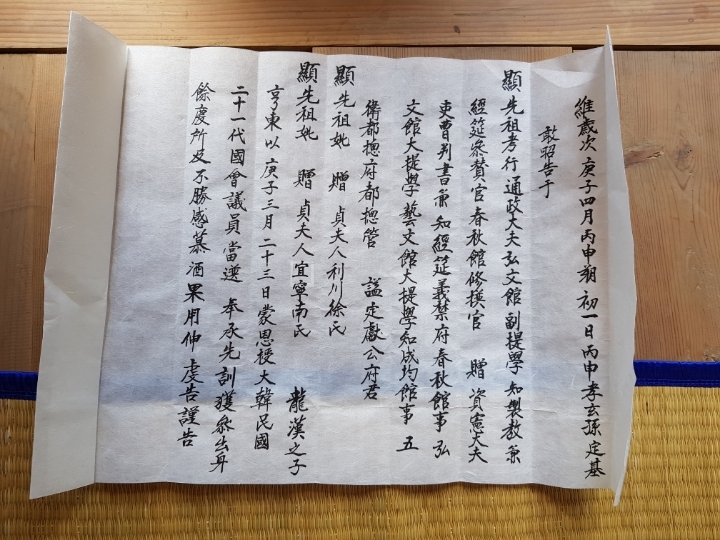 維歲次 庚子四月丙申朔 初一日丙申孝玄孫 定基
敢昭告于
顯先祖考行 通政大夫弘文館 副提學 知製教兼
經筵參贊官春秋館修撰官 贈 資憲大夫
吏曹判書兼 知經筵義禁府春秋館事 弘
文館大提學 藝文館大提學知成均館事 五
衛都摠府都摠管 諡定獻公府君
顯先祖妣 贈 貞夫人利川徐氏
顯先祖妣 贈 貞夫人宜寧南氏 龍漢之子
亨東以 庚子三月 二十三日蒙恩授 大韓民國
二十一代國會議員 當選 奉承先訓獲參出身
餘慶所及不勝感慕 酒果用伸 虔告謹告